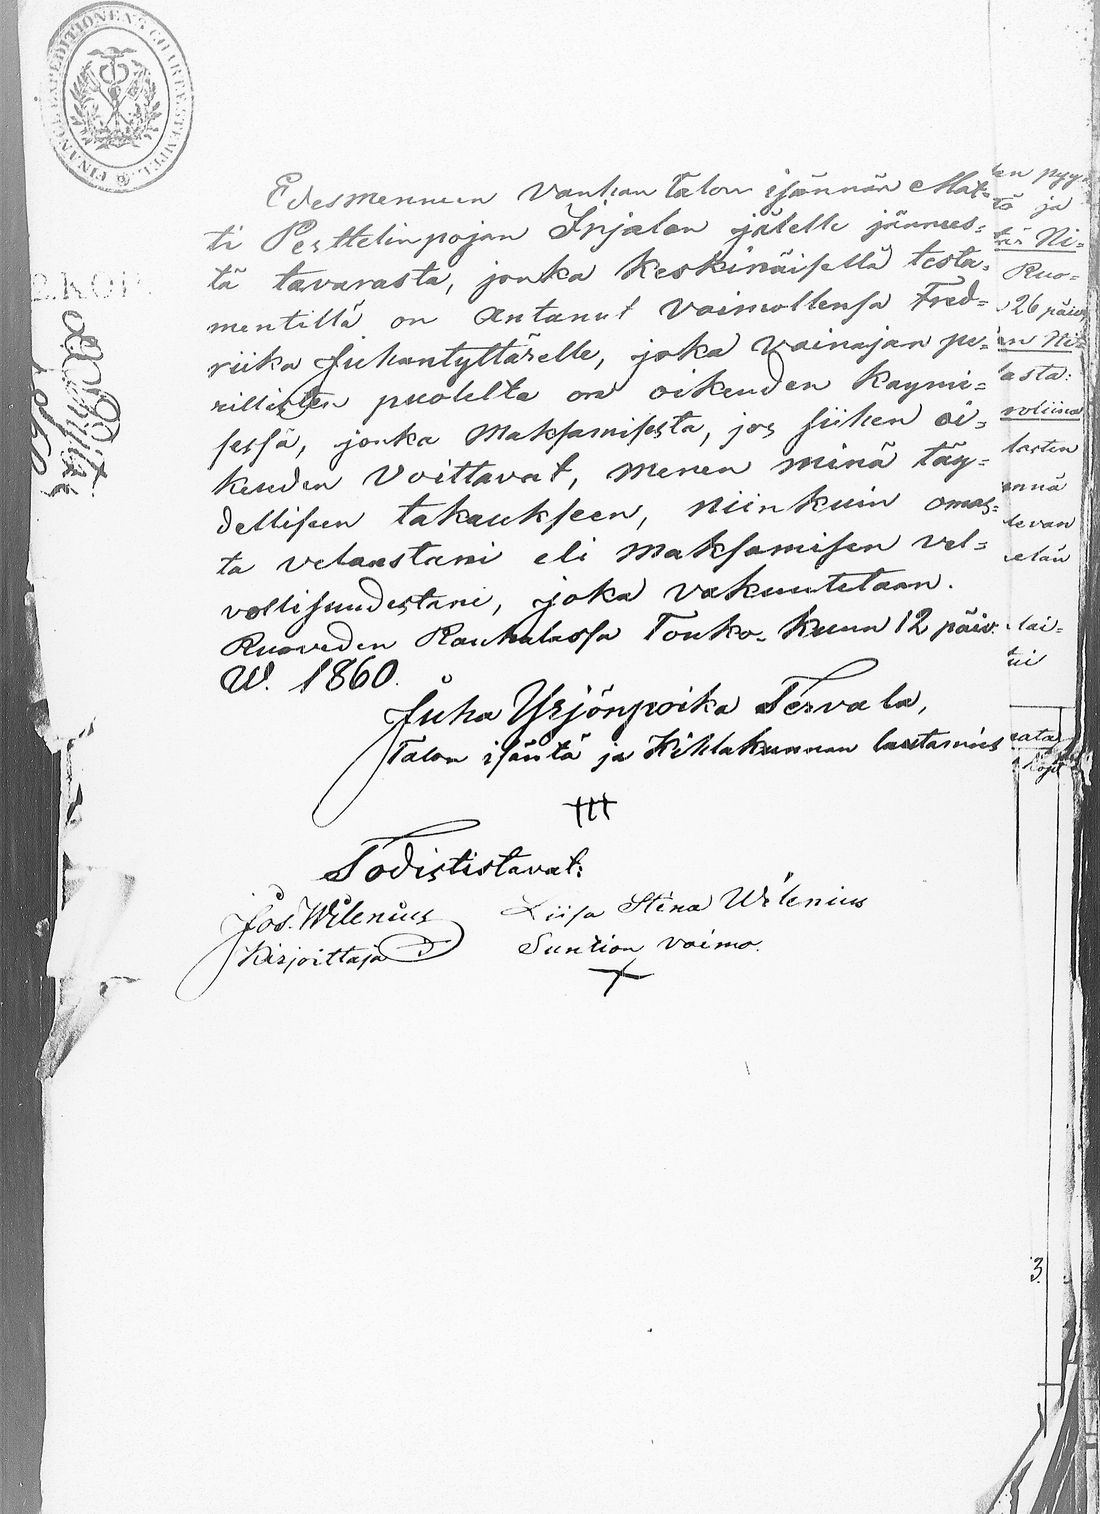 FINANCE EXPEDITIONENS CHARTÆ STEMPEL
2. KOP.
Edesmenneen vanhan talon isännän Mat-
ti Perttelinpojan Irjalan jälelle jäänees-
tä tavarasta, jonka keskinäisellä testa-
mentillä on antanut vaimollensa Fred-
riika Juhantyttärelle, joka vainajan pe-
rillisten puolelta on oikeuden käymi-
sessä, jonka maksamisesta, jos siihen oi-
keuden voittavat, menen minä täy-
delliseen takaukseen, niinkuin omas-
ta velaastani eli maksamisen vel-
vollisuudestani, joka vakuutetaan.
Ruoveden Rauhalassa Touko-kuun 12 päiv.
W. 1860.
Juha Yrjönpoika Tervala,
Talon isäntä ja Kihlakunnan lautamies
Todististavat:
Jos. Wilenius
Kirjoittaja
Liisa Stina Wilenius
Suntion vaimo.
en pyy
tä ja
Ni-
Ruo-
26 päiv
an Ni-
asta:
lasten
levan
lai-
tui
3.